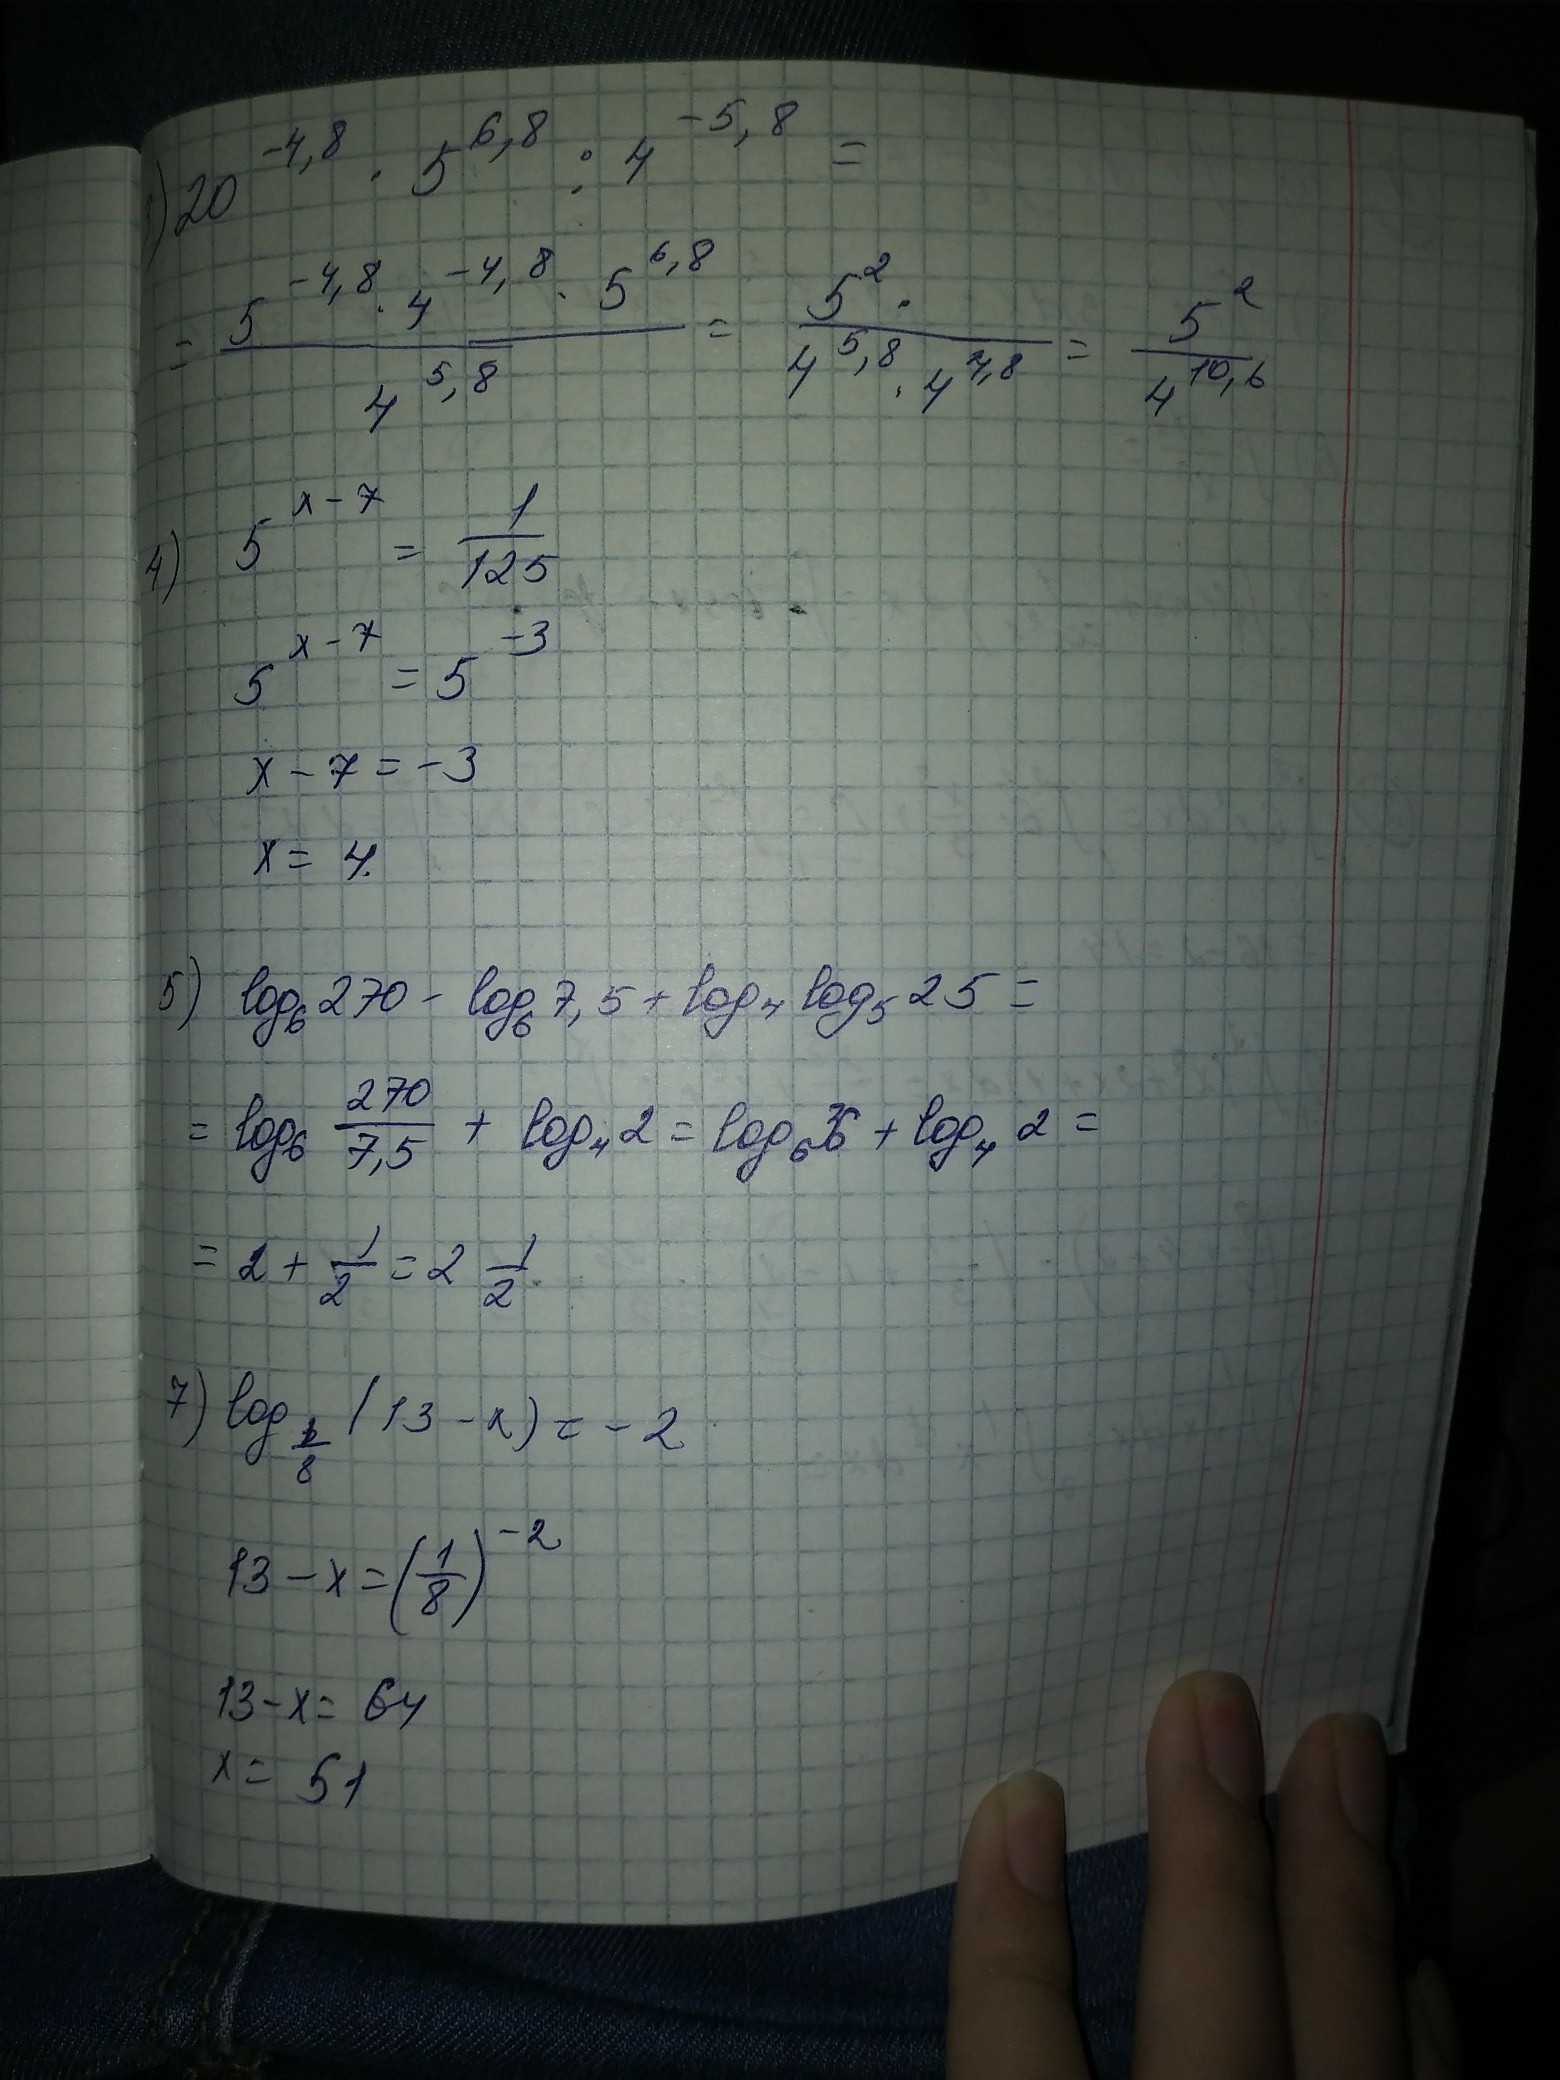 3) 20^{-4,8} · 5^{6,8} : 4^{-5,8} =
= \frac{5^{-4,8} · 4^{-4,8} · 5^{6,8}}{4^{5,8}} = \frac{5^2 ·}{4^{5,8} · 4^{4,8}} = \frac{5^2}{4^{10,6}}
4) 5^{x-7} = \frac{1}{125}
5^{x-7} = 5^{-3}
x - 7 = -3
x = 4.
5) log_6 270 - log_6 7,5 + log_4 log_5 25 =
= log_6 \frac{270}{7,5} + log_4 2 = log_6 36 + log_4 2 =
= 2 + \frac{1}{2} = 2 \frac{1}{2}
7) log_{\frac{1}{8}} (13 - x) = -2
13 - x = (\frac{1}{8})^{-2}
13 - x = 64
x = 51